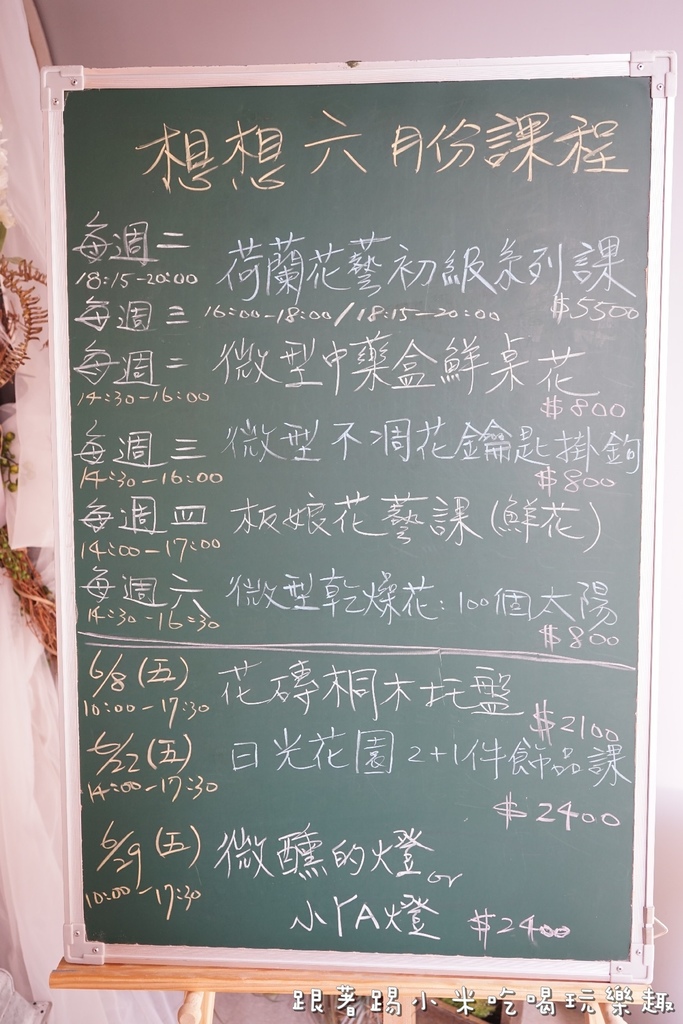 想想六月份課程
每週二 荷蘭花藝初級系列課
18:15-20:00
$5500
每週三 16:00-18:00/18:15-20:00
每週二 微型中藥盒鮮桌花
14:30-16:00
$800
每週三 微型不凋花鑰匙掛鉤
14:30-16:00
$800
每週四 板娘花藝課(鮮花)
14:00-17:00
每週六 微型乾燥花:100個太陽
14:30-16:30
$800
6/8(五) 花磚桐木托盤
10:00-17:30
$2100
6/22(五) 日光花園2+1件飾品課
14:00-17:30
$2400
6/29(五) 微醺的燈
10:00-17:30
or
小YA燈 $2400
跟著踢小米吃喝玩樂趣